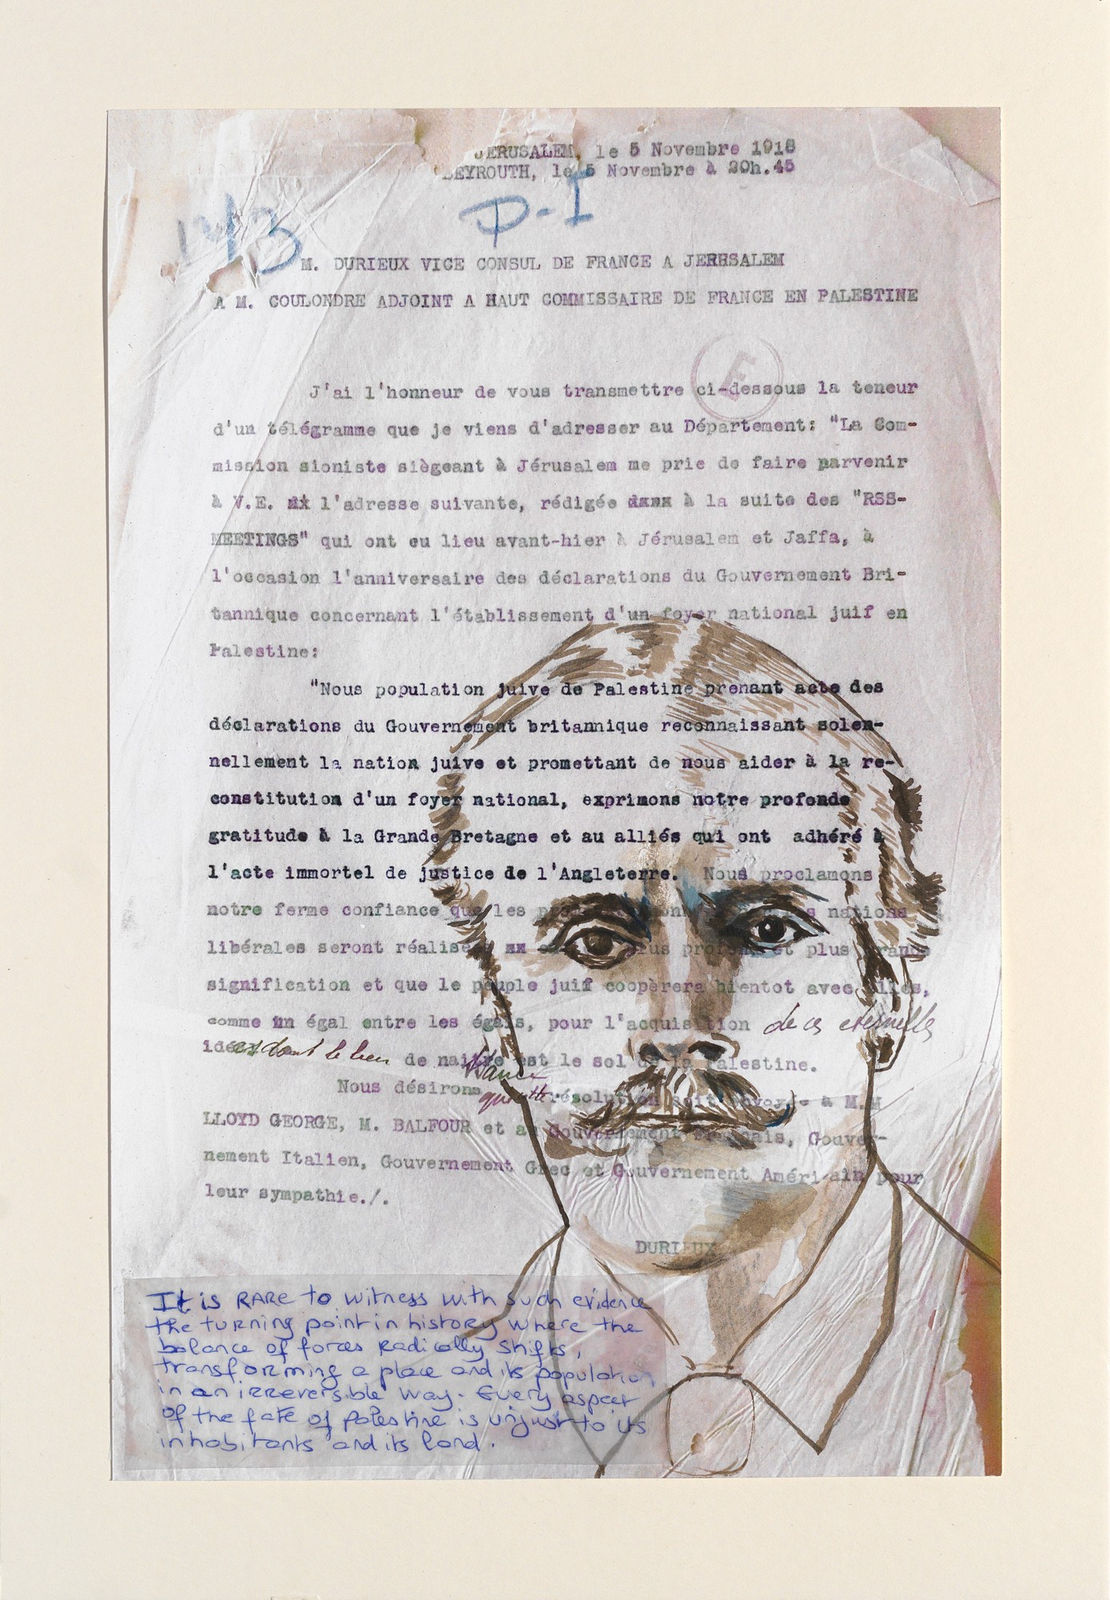 JERUSALEM, le 5 Novembre 1918
BEYROUTH, le 5 Novembre à 20h.45
143
P-I
M. DURIEUX VICE CONSUL DE FRANCE A JERHSALEM
A M. COULONDRE ADJOINT A HAUT COMMISSAIRE DE FRANCE EN PALESTINE
E
J'ai l'honneur de vous transmettre ci-dessous la teneur
d'un télégramme que je viens d'adresser au Département: "La Com-
mission sioniste siègeant à Jérusalem me prie de faire parvenir
à V.E. l'adresse suivante, rédigée à la suite des "RSS-
MEETINGS" qui ont eu lieu avant-hier à Jérusalem et Jaffa, à
l'occasion l'anniversaire des déclarations du Gouvernement Bri-
tannique concernant l'établissement d'un foyer national juif en
Palestine:
"Nous population juive de Palestine prenant acte des
déclarations du Gouvernement britannique reconnaissant solen-
nellement la nation juive et promettant de nous aider à la re-
constitution d'un foyer national, exprimons notre profonde
gratitude à la Grande Bretagne et au alliés qui ont adhéré à
l'acte immortel de justice de l'Angleterre. Nous proclamons
notre ferme confiance que les nations
libérales seront et plus grande
signification et que le peuple juif coopèrera bientot avec elles,
comme un égal entre les égaux, pour l'acquisition de ces eternelles
idées dont le lieu de naitre est le sol de la Palestine.
Nous désirons résolution soit envoyée à M.M
LLOYD GEORGE, M. BALFOUR et au Gouvernement Français, Gouver-
nement Italien, Gouvernement Grec et Gouvernement Américain pour
leur sympathie./.
DURIEUX
It is RARE to witness with such evidence
the turning point in history where the
balance of forces Radically shifts,
transforming a place and its population
in an irreversible way. Every aspect
of the fate of Palestine is unjust to its
inhabitants and its land.